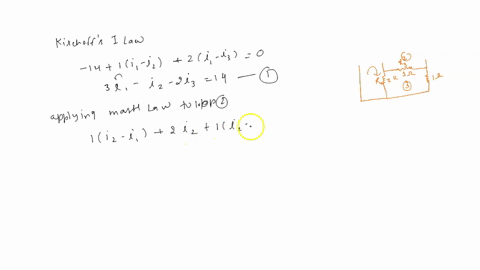 Kirchoff's I Law
-14 + 1(i₁-i₂) + 2(i₁-i₃) = 0
3i₁ - i₂ - 2i₃ = 14 — ①
applying mash Law to loop ②
1(i₂-i₁) + 2i₂ + 1(i₂-